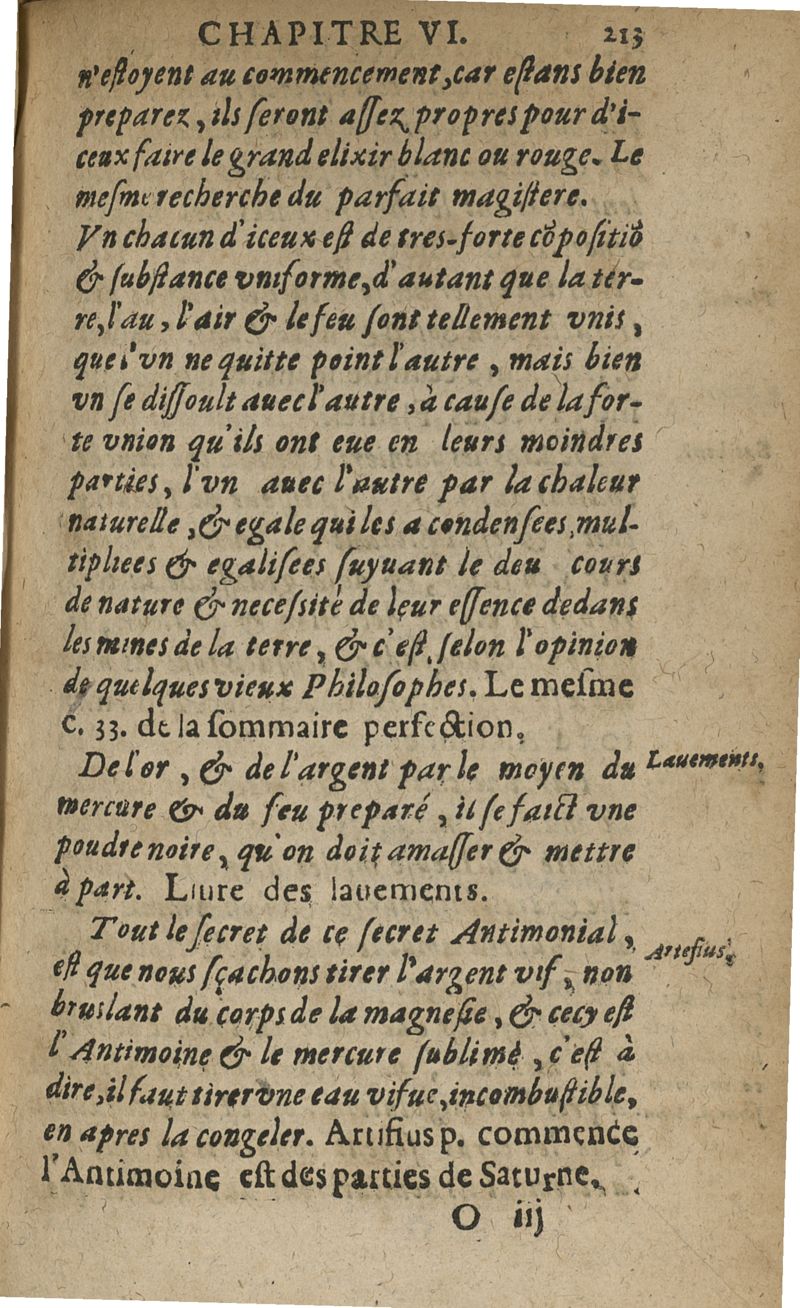 CHAPITRE VI. 213
n'eſtoyent au commencement, car eſtans bien
preparez, ils ſeront aſſez propres pour d'i-
ceux faire le grand elixir blanc ou rouge. Le
meſme recherche du parfait magiſtere.
Vn chacun d'iceux eſt de tres-forte cõpoſitiõ
& ſubſtance vniforme, d'autant que la ter-
re, l'au, l'air & le feu ſont tellement vnis,
que l'vn ne quitte point l'autre, mais bien
vn ſe diſſoult auec l'autre, à cauſe de la for-
te vnion qu'ils ont eue en leurs moindres
parties, l'vn auec l'autre par la chaleur
naturelle, & egale qui les a condenſees, mul-
tipliees & egaliſees ſuyuant le deu cours
de nature & neceſsité de leur eſſence dedans
les mines de la terre, & c'eſt ſelon l'opinion
de quelques vieux Philoſophes. Le meſme
c. 33. de la ſommaire perfection.
De l'or, & de l'argent par le moyen du
Lauements,
mercure & du feu preparé, il ſe faict vne
poudre noire, qu'on doit amaſſer & mettre
à part. Liure des lauements.
Tout le ſecret de ce ſecret Antimonial,
Artefius,
eſt que nous ſçachons tirer l'argent vif, non
bruslant du corps de la magneſie, & cecy eſt
l'Antimoine & le mercure ſublimé, c'eſt à
dire, il faut tirer vne eau vifue, incombuſtible,
en apres la congeler. Artifius p. commence
l'Antimoine eſt des parties de Saturne.
O iij